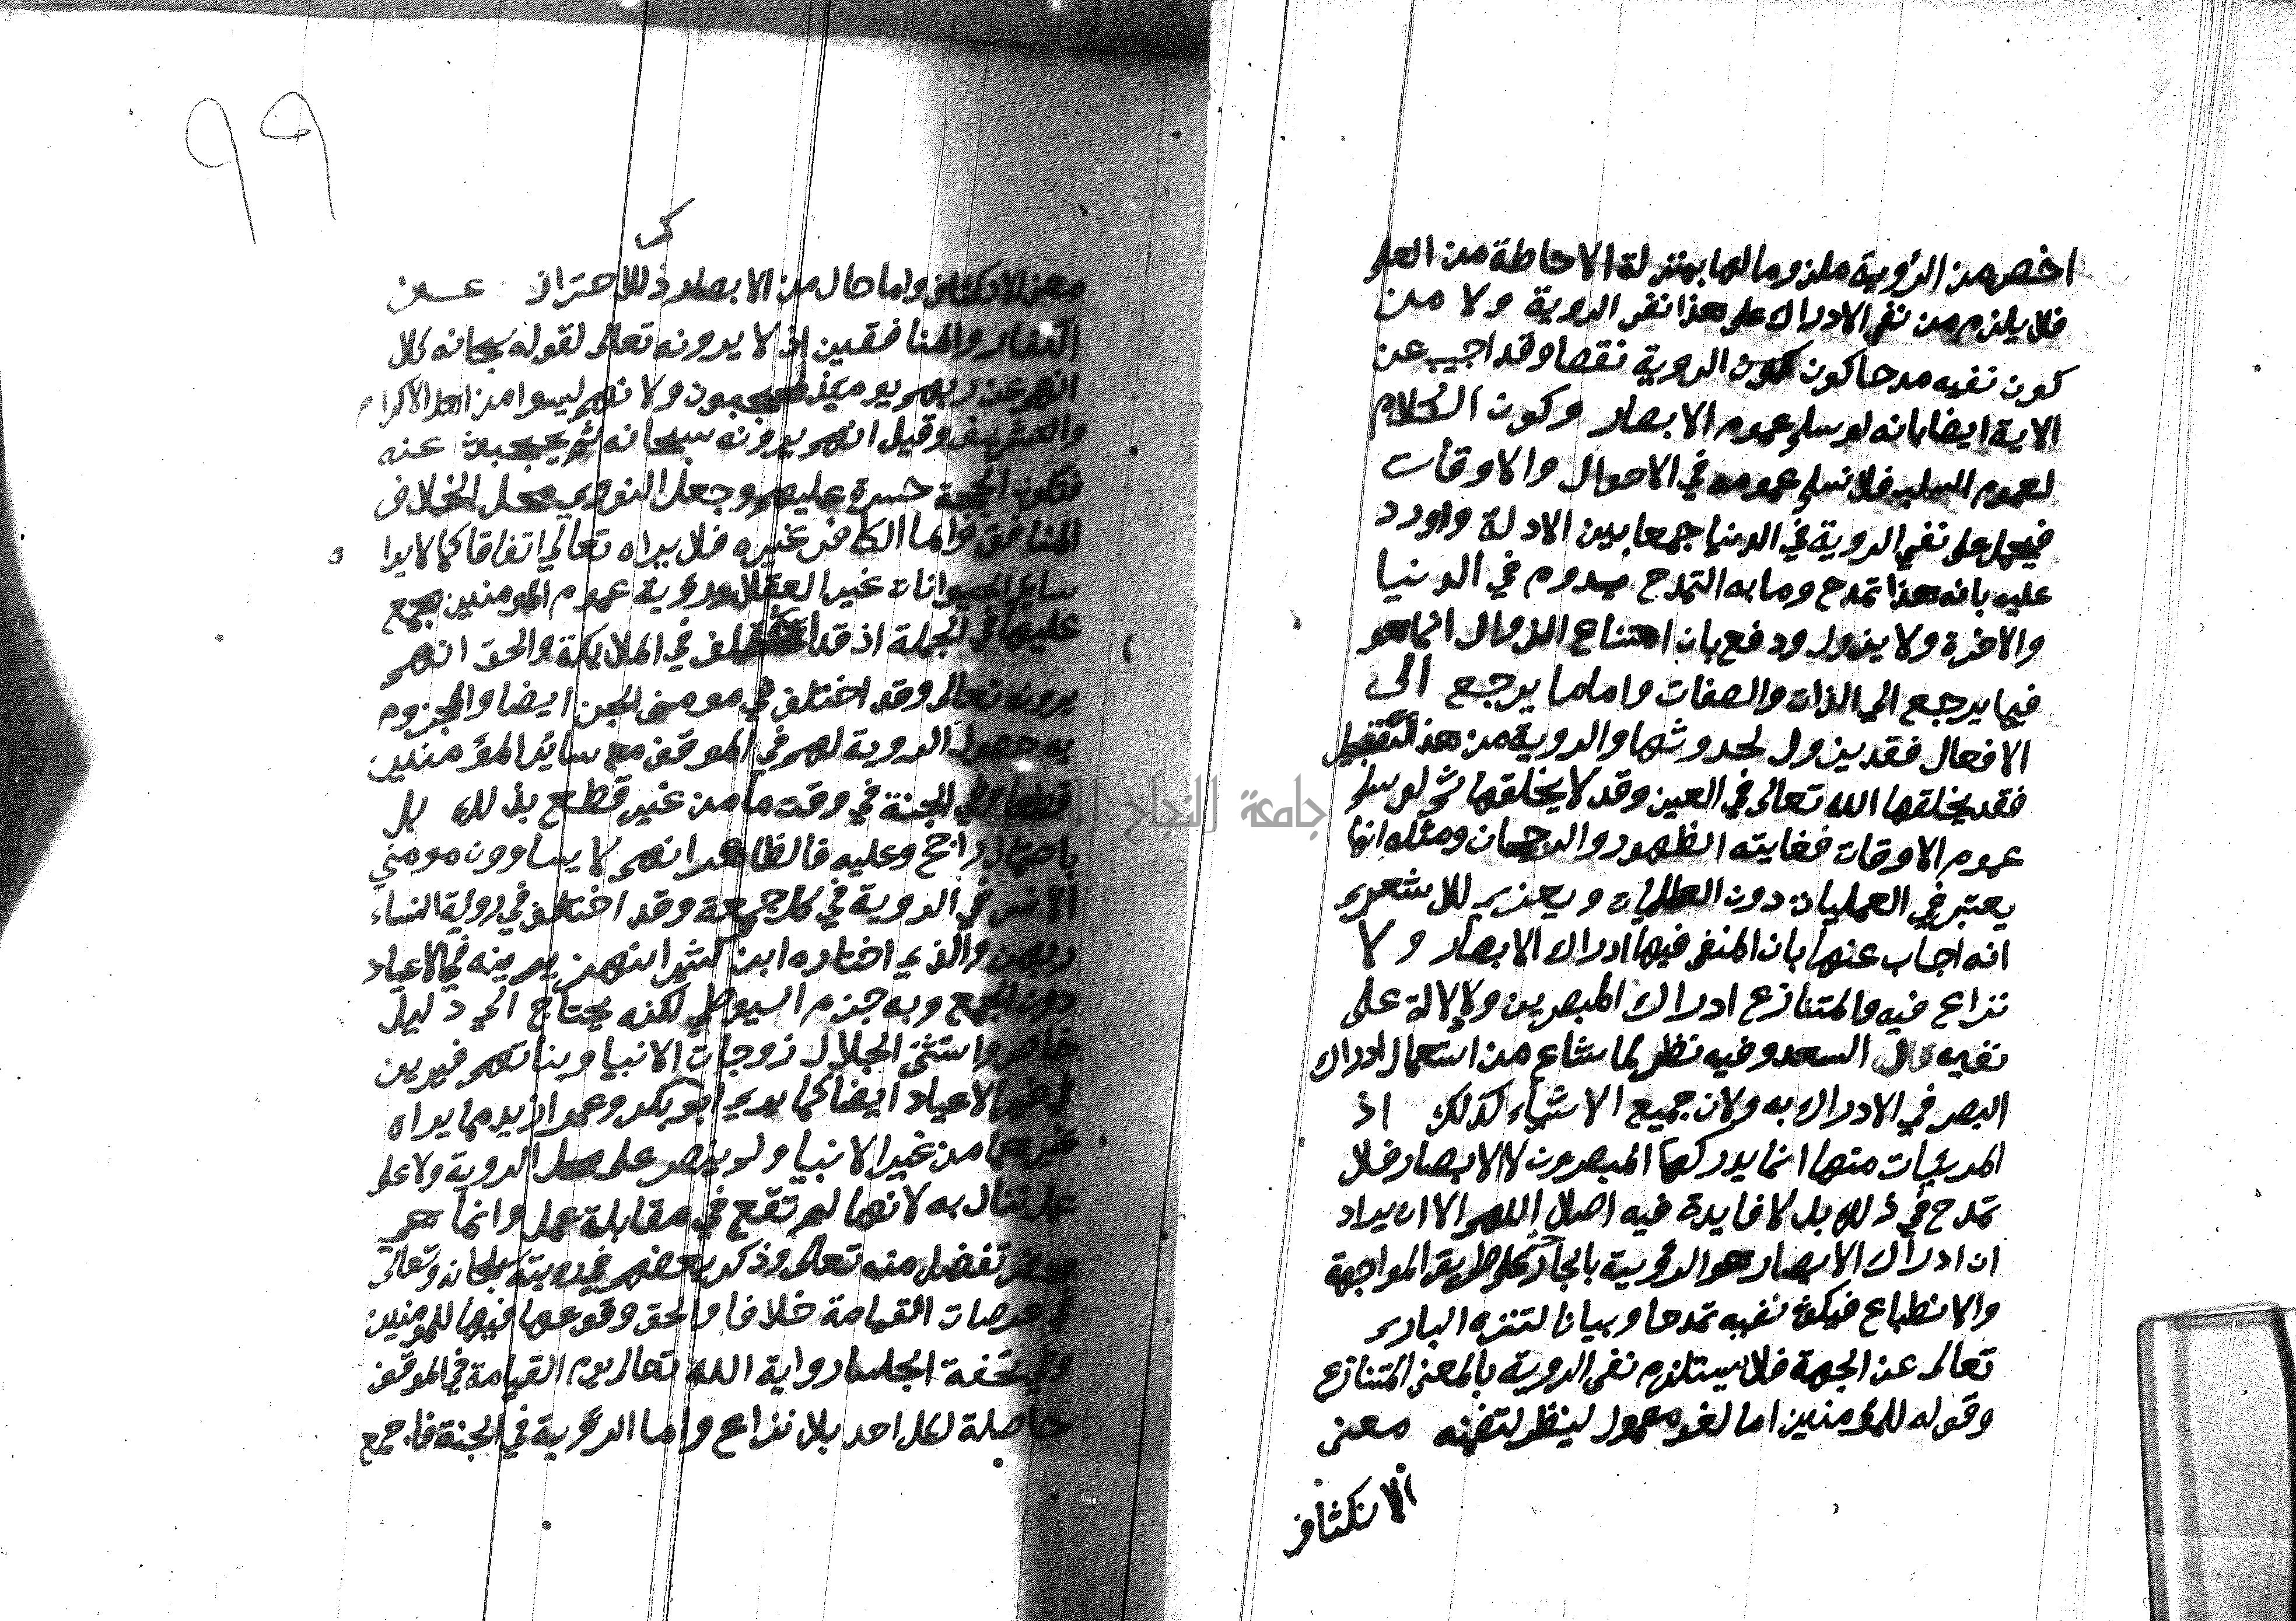 اخص من الرؤية ملزوما لها بمنزلة الاحاطة من العلم
فلا يلزم من نفي الادراك على هذا نفي الروية ولا من
كون نفيه مدحا كون الروية نقصا وقد اجيب عن
الاية ايضا بانه لو سلم عموم الابصار وكون الكلام
لعموم السلب فلا نسلم عمومه في الاحوال والاوقات
فيحمل على نفي الروية في الدنيا جمعا بين الادلة واورد
عليه بان هذا تمدح وما به التمدح يدوم في الدنيا
والاخرة ولا يزول ودفع بان امتناع الزوال انما هو
فيما يرجع الي الذات والصفات واما ما يرجع الى
الافعال فقد يزول لحدوثها والروية من هذا القبيل
فقد يخلقها الله تعالى في العين وقد لا يخلقها ثم لو سلم
عموم الاوقات فغايته الظهور والرجحان ومثله انما
يعتبر في العمليات دون العلميات ويعزى للاشعري
انه اجاب عنها بان المنفي فيها ادراك الابصار ولا
نزاع فيه والمتنازع ادراك المبصرين ولا دلالة على
نفيه قال السعد وفيه نظر لما شاع من استعمال ادراك
البصر في الادراك به ولان جميع الاشياء كذلك اذ
المرئيات منها انما يدركها المبصرون لا الابصار فلا
تمدح في ذلك بل لا فايدة فيه اصلا اللهم الا ان يراد
ان ادراك الابصار هو الرؤيية بالجارحة على طريق المواجهة
والانطباع فيكون نفيه تمدحا وبيانا لتنزه الباري
تعالى عن الجهة فلا يستلزم نفي الروية بالمعنى المتنازع
وقوله للمؤمنين اما لغو معمول لينظر لتضمنه معنى
الانكشاف
جامعة النجاح
٩٩
معنى الانكشاف واما حال من الابصار فللاحتراز عن
الكفار والمنافقين اذ لا يرونه تعالى لقوله سبحانه كلا
انهم عن ربهم يوميذ لمحجوبون ولانهم ليسوا من اهل الاكرام
والتشريف وقيل انهم يرونه سبحانه ثم يحجبون عنه
فتكون الحجبة حسرة عليهم وجعل النووي محل الخلاف
المنافق واما الكافر غيره فلا يراه تعالى اتفاقا كما لا يراه
ساير الحيوانات غير العقلا ورؤية عموم المومنين مجمع
عليها في الجملة اذ قد اختلف في الملايكة والحق انهم
يرونه تعالى وقد اختلف في مومنى الجن ايضا والمجزوم
به حصول الروية لهم في الموقف مع سائر المؤمنين
قطعا وفي الجنة في وقت ما من غير قطع بذلك بل
باحتمال راجح وعليه فالظاهر انهم لا يساوون مومني
الانس في الروية في كل جمعة وقد اختلف في روية النساء
ربهن والذي اختاره ابن كثير انهن يرينه في الاعياد
دون الجمع وبه جزم السيوطي لكنه يحتاج الي دليل
خاص واستثنى الجلال زوجات الانبيا وبناتهم فيرين
في غير الاعياد ايضا كما يرى ابو بكر وعمر ازيد مما يراه
غيرهما من غير الانبيا ولم ينص على محل الروية ولا على
عمل تنال به لانها لم تقع في مقابلة عمل وانما هي
محض تفضل منه تعالى وذكر بعضهم في رويته سبحانه وتعالى
في عرصات القيامة خلافا والحق وقوعها فيها للمومنين
وفي تحفة الجلسا رواية الله تعالى يوم القيامة في الموقف
حاصلة لكل احد بلا نزاع واما الرؤية في الجنة فاجمع